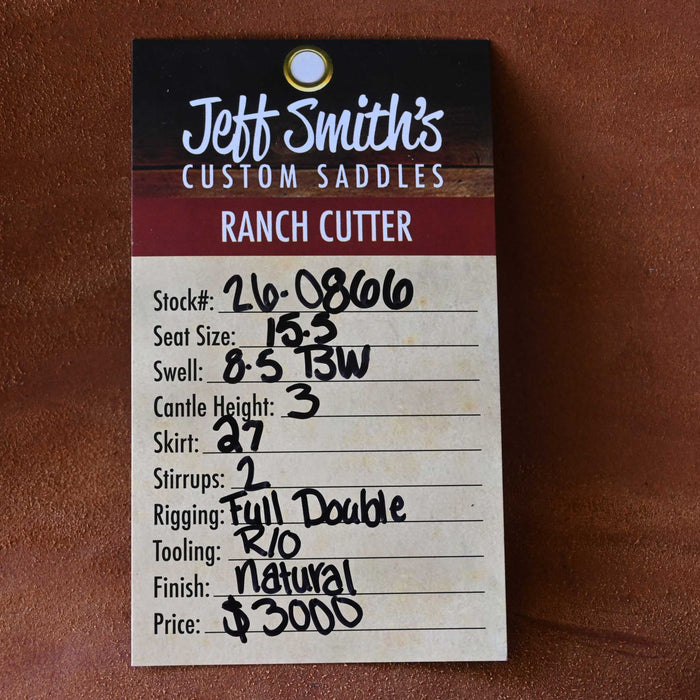 Jeff Smith's
CUSTOM SADDLES
RANCH CUTTER
Stock#: 26-0866
Seat Size: 15.5
Swell: 8.5 TBW
Cantle Height: 3
Skirt: 27
Stirrups: 2
Rigging: Full Double
Tooling: R/O
Finish: natural
Price: $3000